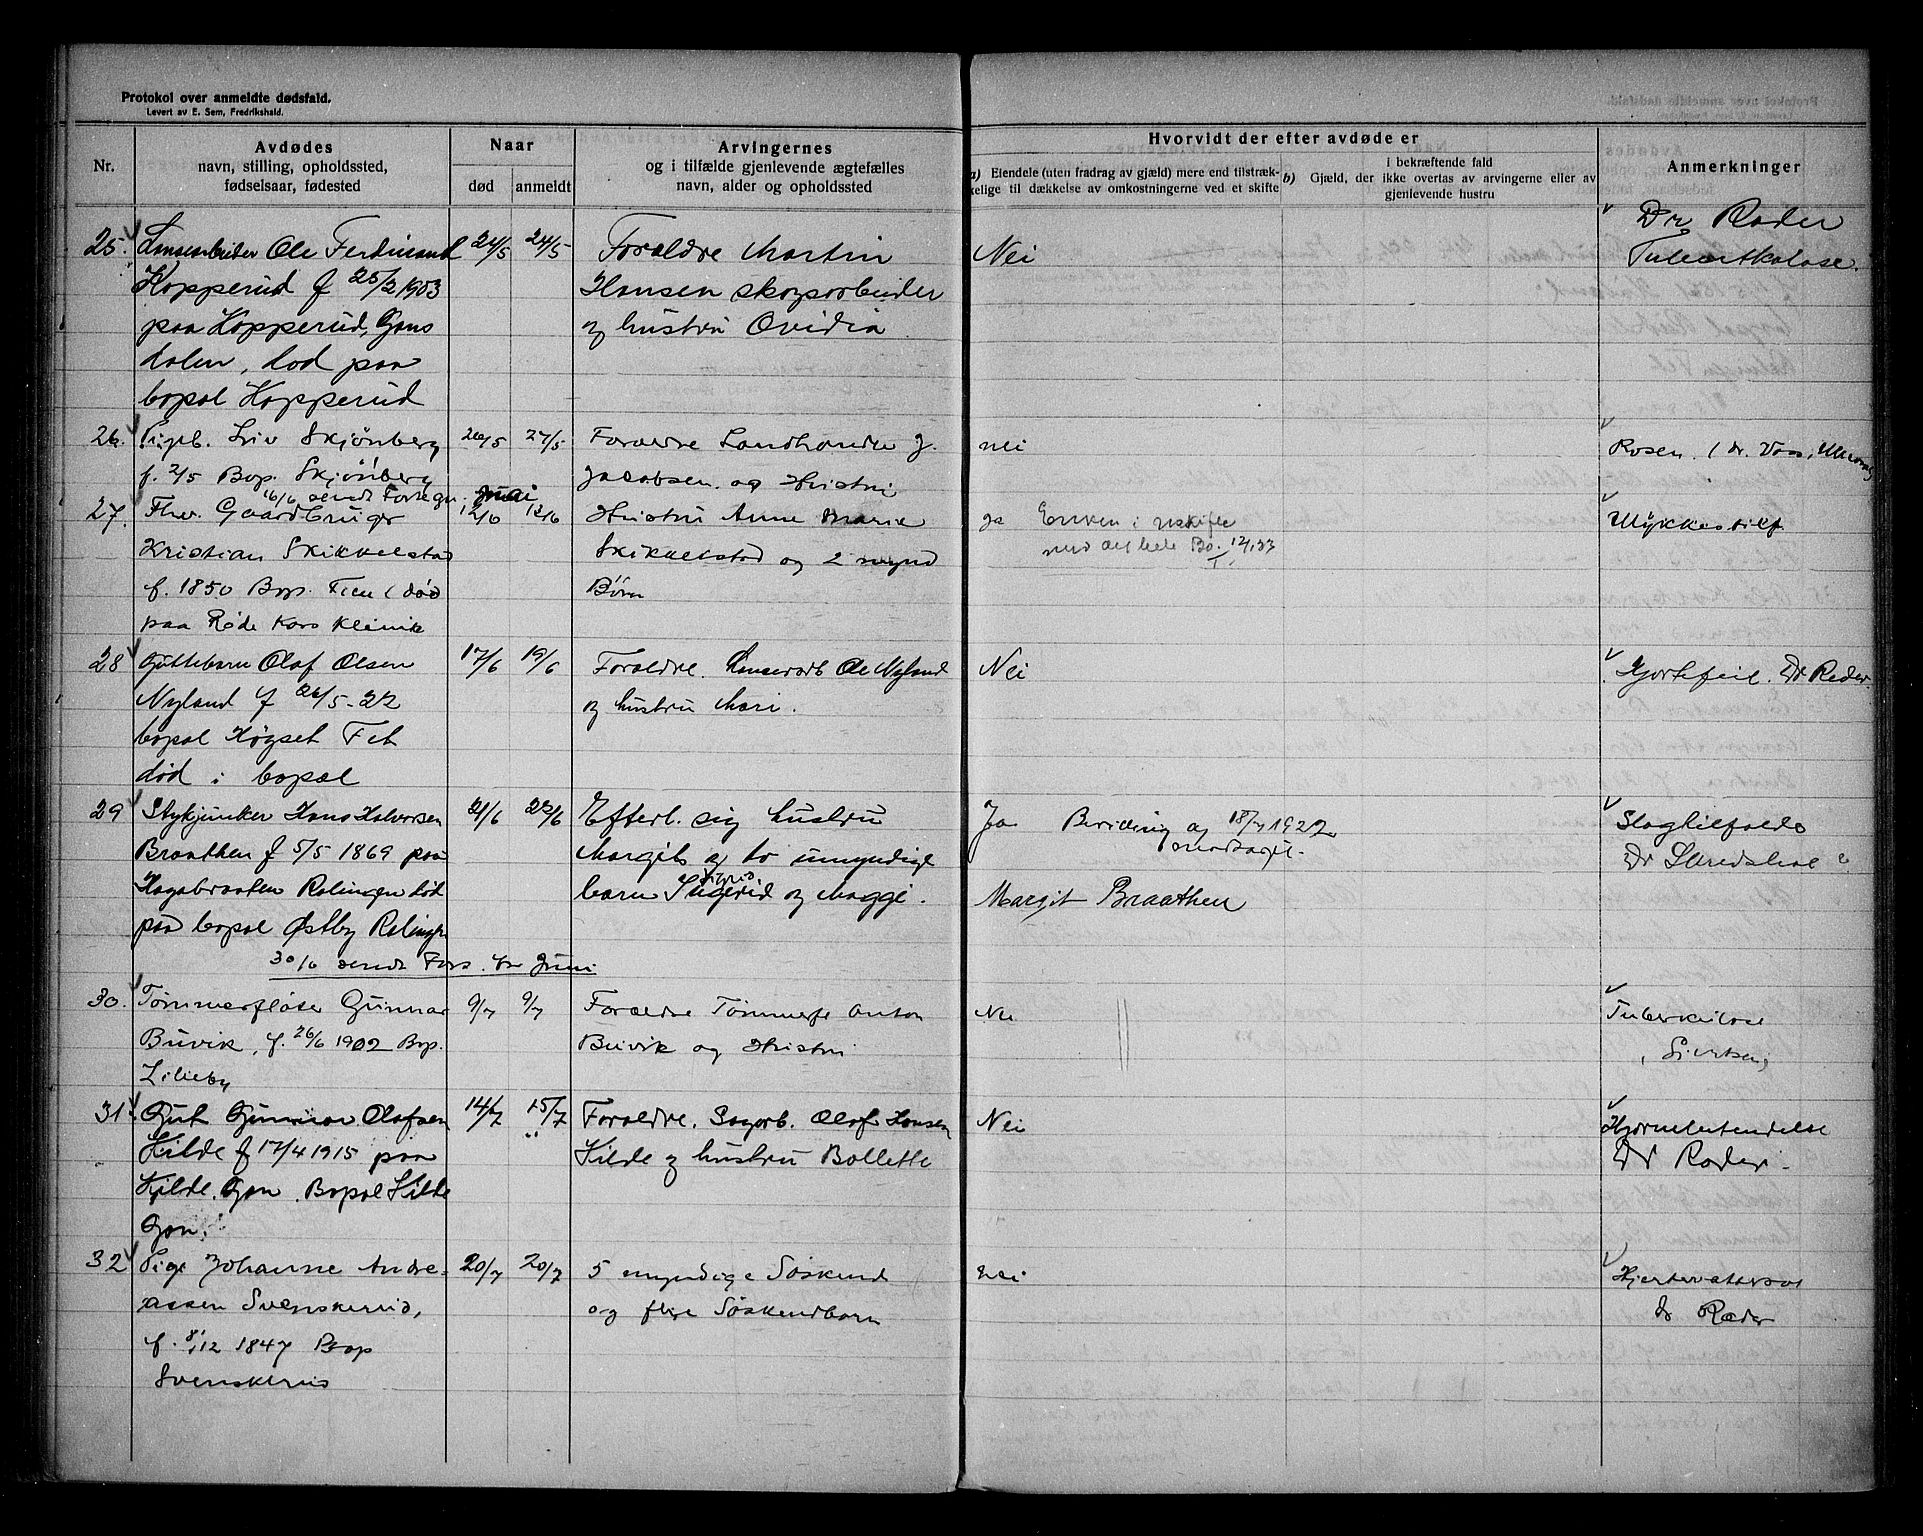 Protokol over anmeldte dødsfald.
Levert av E. Sem, Fredrikshald.
Nr.
Avdødes
navn, stilling, opholdssted,
fødselsaar, fødested
Naar
død
anmeldt
Arvingernes
og i tilfælde gjenlevende ægtefælles
navn, alder og opholdssted
Hvorvidt der efter avdøde er
a) Eiendele (uten fradrag av gjæld) mere end tilstræk-
kelige til dækkelse av omkostningerne ved et skifte
b) Gjæld, der
i bekræftende fald
ikke overtas av arvingerne eller av
gjenlevende hustru
Anmerkninger
25. Lensearbeider Ole Ferdinand
Kopperud f 25/3 1903
paa Kopperud, Gans
dalen, død paa
bopæl Kopperud
24/5 24/5
Forældre Martin
Hansen skogsarbeider
og hustru Ovidia
Nei
Dr Ræder
Tuberkolose.
26. Pigeb. Liv Skjønberg
f. 2/5 Bop. Skjønberg
26/5 27/5
Forældre Landhandler J.
Jacobsen og Hustru
nei
Rosen (dr. Voss,
16/6 sendt Fortegn. Juni
27. Fhv. Gaardbruger
Kristian Skikkelstad
f. 1850 Bop. Tien (død
paa Røde Kors Klinik
12/6 13/6
Hustru Anne Marie
Skikkelstad og 2 mynd
Børn
ja Enken i uskifte
med det hele Bo. 12/1 33
Ulykkestilf
28 Guttebarn Olaf Olsen
Nyland f 26/5-22
bopæl Høgset Fet
død i bopæl
17/6 19/6
Forældre. Lensearb Ole Nyland
og hustru Mari.
Nei
Hjertefeil. Dr Ræder.
29 Stykjunker Hans Halvorsen
Braathen f 5/5 1869 paa
Hagabraaten Rælingen død
paa bopæl Østby Rælingen
21/6 22/6
Efterl. sig hustru
Margit og to umyndige
barn Sigrid og Maggi.
Ja Bevilling ag 18/7 1922
mottaget.
Margit Braathen
Slagtilfælde
Dr
30/6 sendt Fors. for Juni
30. Tømmerfløter Gunnar
Buvik, f. 26/6 1902 Bop.
Lilleby
9/7 9/7
Forældre Tømmerfl Anton
Buvik og Hustru
Nei
Tuberkulose
, Sivertsen,
31. Gut Gunnar Olafsen
Kilde f 17/4 1915 paa
Kilde. Gan. Bopæl Kilde
Gan.
14/7 15/7
Forældre. Sagarb. Olaf Hansen
Kilde og hustru Bollette
Nei
Hjernebetendelse
Dr Ræder.
32 Pige Johanne Andre-
assen Svenskerud,
f. 8/12 1847 Bop
Svenskerud
20/7 20/7
5 myndige Søskend
og flere Søskendbarn
nei
Hjertevattersot
dr Ræder